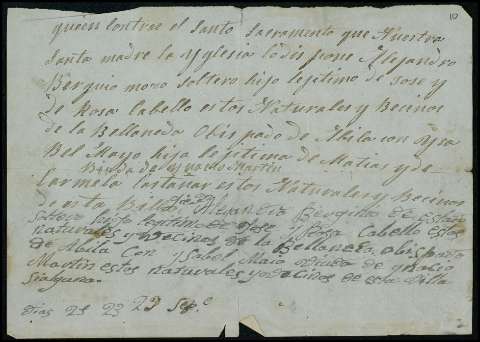 10
quren contrae el santo sacramento que Nuestra
santa madre la Yglesia lo dis pone Alejandro
Berquio moso soltero hijo legitimo de Jose y
de Rosa Cabello estos Naturales y Becinos
de la Bellaneda Obis pado de Abila con Ysa
Bel Mayo hija lejitima de Matias y de
Biuda de Martin
Carmela estos Naturales y Becinos
de esta Billa
Alexandro Berquio de estado
soltero hijo de Jose y Rosa Cabello estos
naturales y vecinos de la Bellaneda obispado
de Abila Con Ysabel Maio viuda de ygnacio
Martin estos naturales y vecinos de esta Villa
sin alguna.
Dias 21 23 29 Sep.e